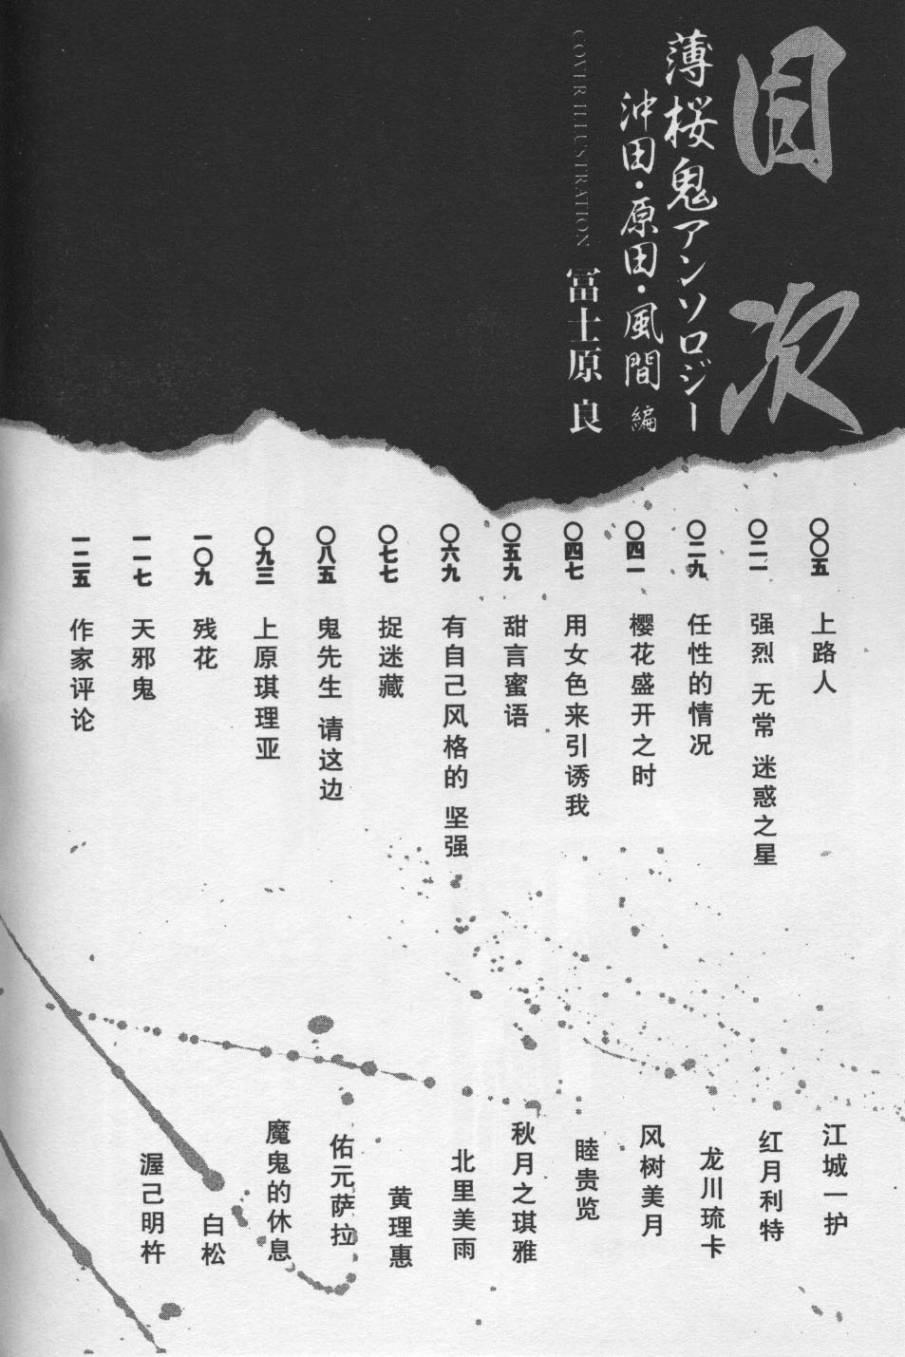 目次
薄桜鬼アンソロジー
沖田・原田・風間 編
COVER ILLUSTRATION 冨士原 良
〇〇五 上路人 江城一护
〇二一 强烈 无常 迷惑之星 红月利特
〇二九 任性的情况 龙川琉卡
〇四一 樱花盛开之时 风树美月
〇四七 用女色来引诱我 睦贵览
〇五九 甜言蜜语 秋月之琪雅
〇六九 有自己风格的 坚强 北里美雨
〇七七 捉迷藏 黄理惠
〇八五 鬼先生 请这边 佑元萨拉
〇九三 上原琪理亚 魔鬼的休息
一〇九 残花 白松
一一七 天邪鬼 渥己明杵
一二五 作家评论